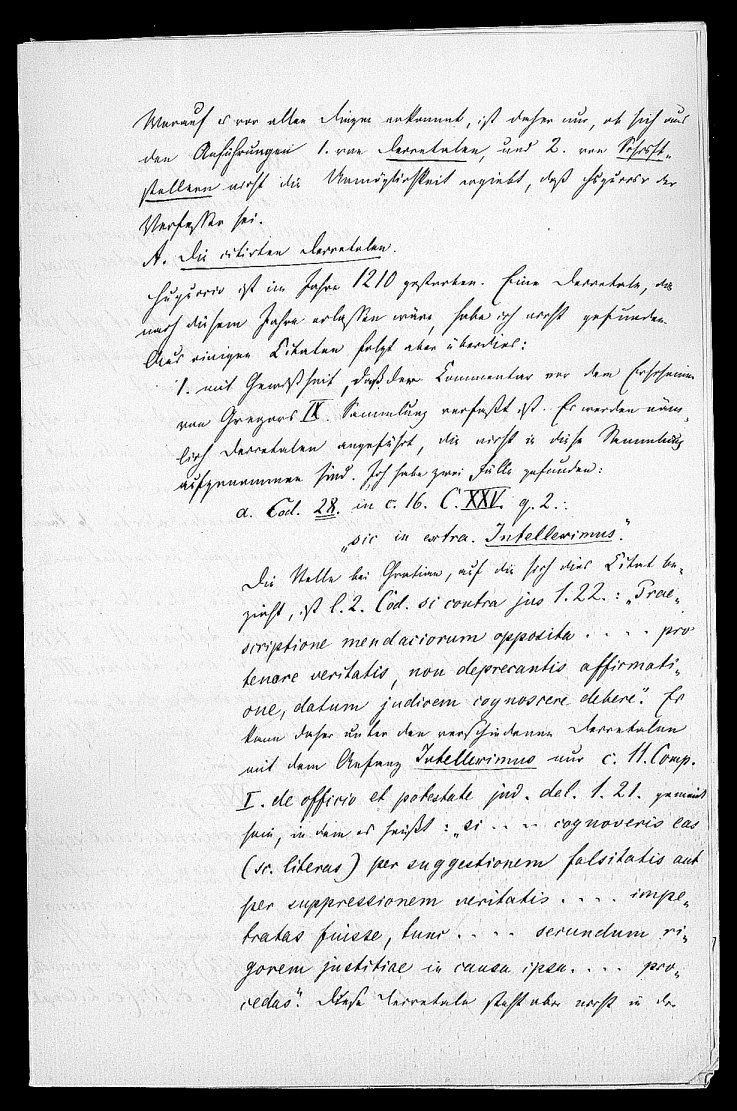 Worauf es vor allen Dingen ankommt, ist daher nur, ob sich aus
den Anführungen 1. von Decretalen, und 2. von Schrift-
stellern nicht die Unmöglichkeit ergiebt, daß Huguccio der
Verfasser sei.
A. Die citirten Decretalen.
Huguccio ist im Jahre 1210 gestorben. Eine Decretale, die
nach diesem Jahre erlassen wäre, habe ich nicht gefunden.
Aus einigen Citaten folgt aber überdies:
1. mit Gewißheit, daß der Commentar vor dem Erscheinen
von Gregors IX. Sammlung verfaßt ist. Es werden näm-
lich Decretalen angeführt, die nicht in diese Sammlung
aufgenommen sind. Ich habe zwei Fälle gefunden:
a. Cod. 28. in c. 16. C. XXV. q. 2.:
„sic in extra. Intelleximus".
Die Stelle bei Gratian, auf die sich dies Citat be-
zieht, ist l. 2. Cod. si contra jus 1. 22.: „Prae-
scriptione mendaciorum opposita . . . . pro
tenore veritatis, non deprecantis affirmati-
one, datum judicem cognoscere debere". Es
kann daher unter den verschiedenen Decretalen
mit dem Anfang Intelleximus nur c. 11. Comp.
I. de officio et potestate jud. del. 1. 21. gemeint
sein, in dem es heißt: „si . . . cognoveris eas
(sc. literas) per suggestionem falsitatis aut
per suppressionem veritatis . . . . impe-
tratas fuisse, tunc . . . . secundum ri-
gorem justitiae in causa ipsa . . . . pro-
cedas". Diese Decretale steht aber nicht in der